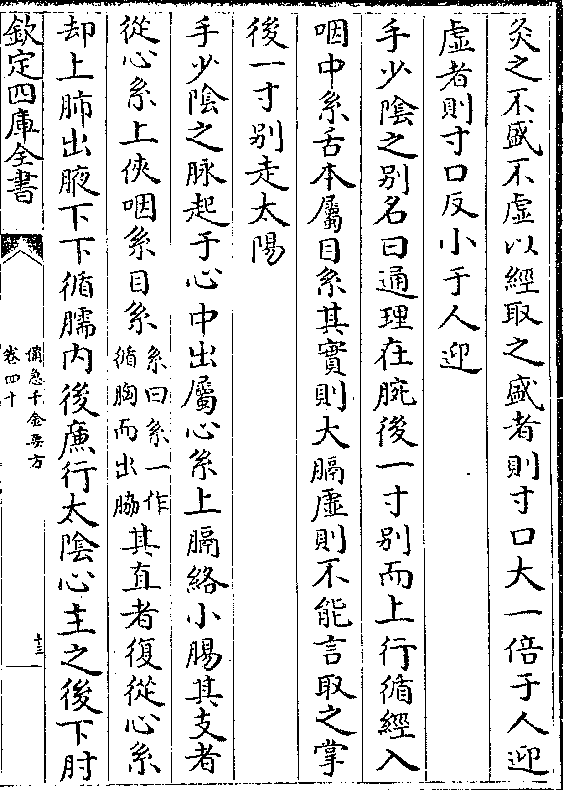 灸之不盛不虛以經取之盛者則寸口大一倍于人迎
虛者則寸口反小于人迎
手少陰之别名曰通理在腕後一寸别而上行循經入
咽中系舌本屬目系其實則大膈虛則不能言取之掌
後一寸别走太陽
手少陰之脉起于心中出屬心系上膈絡小腸其支者
從心系上俠咽系目系系曰系一作循胸而出脇其直者復從心系
却上肺出腋下下循臑内後廉行太陰心主之後下肘
欽定四庫全書
備急千金要方
卷四十
十三